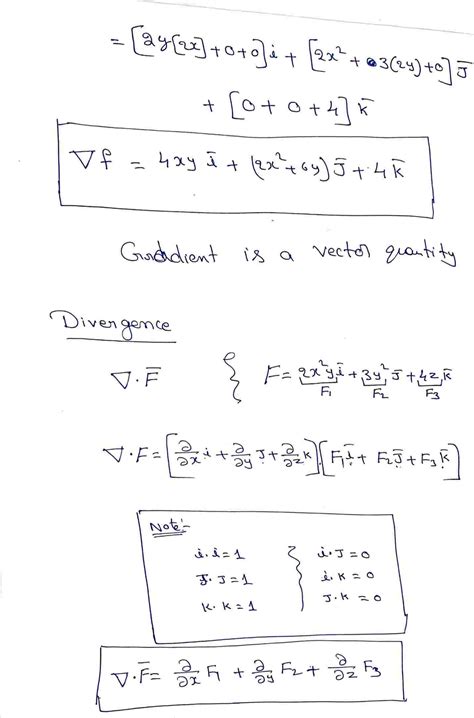 = [2y[2x]+0+0]i + [2x² + 3(2y)+0] J̄
+ [0+0+4] k̄
∇f = 4xy ī + (2x²+6y) J̄ + 4 k̄
Gradient is a vector quantity
Divergence
∇·F̄ { F = 2x²y ī + 3y² J̄ + 4z k̄
F₁ F₂ F₃
∇·F = [∂/∂x i + ∂/∂y J + ∂/∂z k]·[F₁ī + F₂J̄ + F₃k̄]
Note:-
i·i=1 i·J=0
J·J=1 i·k=0
k·k=1 J·k=0
∇·F̄ = ∂/∂x F₁ + ∂/∂y F₂ + ∂/∂z F₃